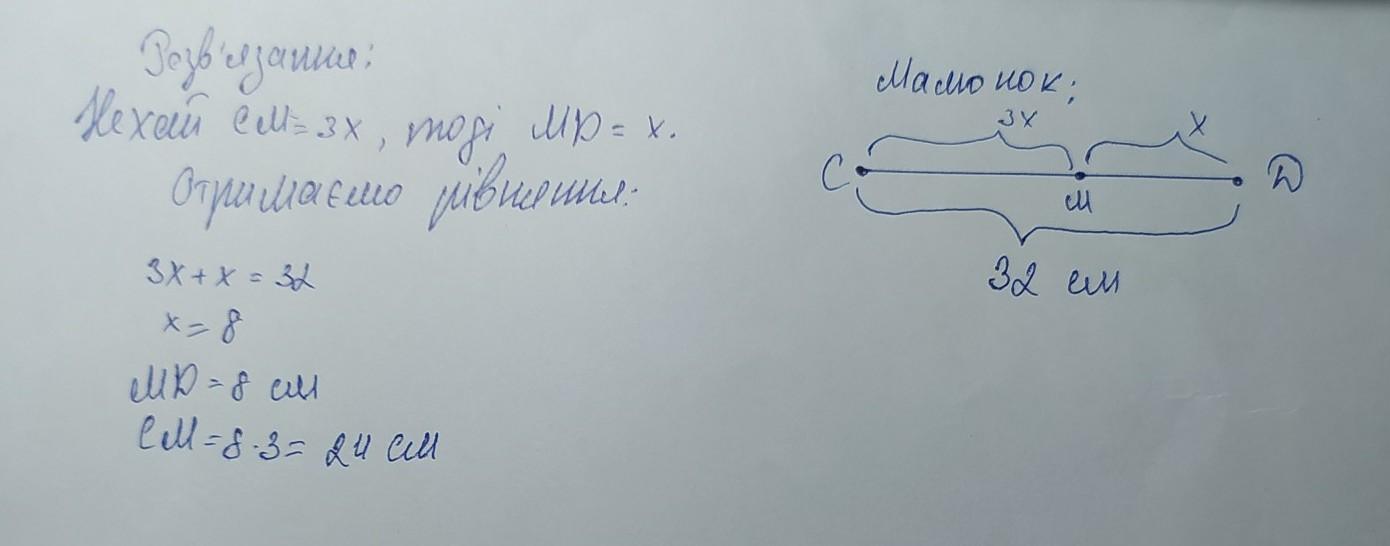 Розв'язання:
Нехай CM = 3x, тоді MD = x.
Отримаємо рівняння:
3x + x = 32
x = 8
MD = 8 см
CM = 8·3 = 24 см
Малюнок:
3x
x
C
M
D
32 см